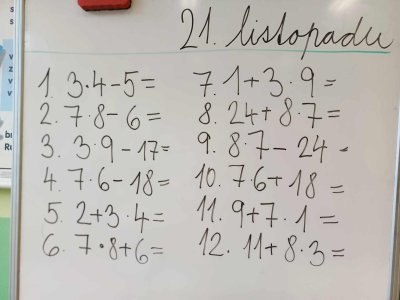 21. listopadu
1. 3·4-5=
2. 7·8-6=
3. 3·9-17=
4. 7·6-18=
5. 2+3·4=
6. 7·8+6=
7. 1+3·9=
8. 24+8·7=
9. 8·7-24-
10. 7·6+18=
11. 9+7·1=
12. 11+8·3=